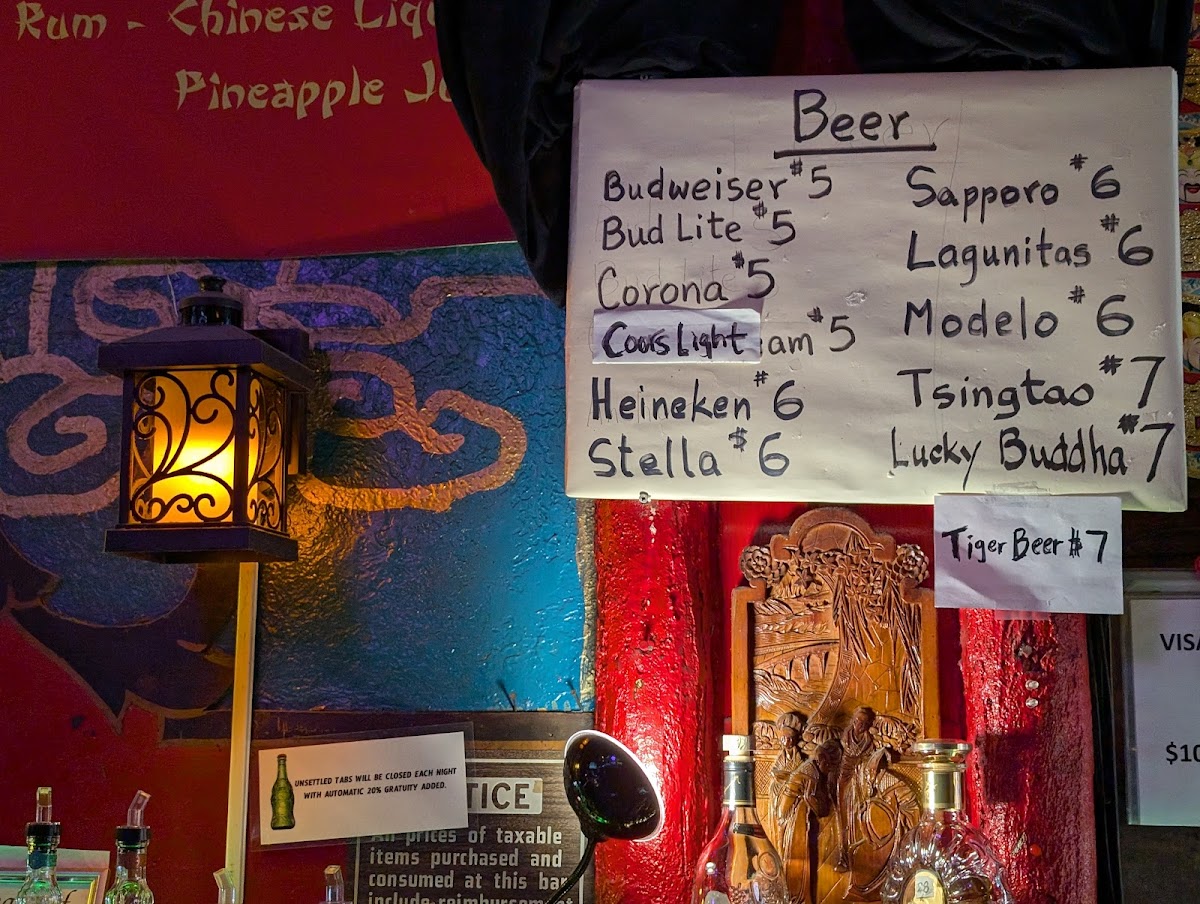 Rum - Chinese
Pineapple
Beer
Budweiser $5
Bud Lite $5
Corona $5
Coors Light am $5
Heineken $6
Stella $6
Sapporo $6
Lagunitas $6
Modelo $6
Tsingtao $7
Lucky Buddha $7
Tiger Beer $7
VISA
$10
UNSETTLED TABS WILL BE CLOSED EACH NIGHT
WITH AUTOMATIC 20% GRATUITY ADDED.
TICE
All prices of taxable
items purchased and
consumed at this bar
include reimbursement